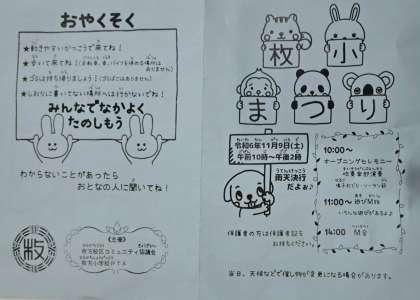 おやくそく
★動きやすいかっこうで来てね！
★歩いて来てね！
★ゴミは持ち帰りましょう！
★しおりに書いてない場所へは行かないでね！
みんなでなかよく
たのしもう
わからないことがあったら
おとなの人に聞いてね！
枚
《主催》
枚方校区コミュニティ協議会
枚方小学校PTA
枚小
まつり
令和6年11月9日(土)
午前10時〜午後2時
雨天決行
だよぉ♪
保護者の方は保護者証を
お持ちください
10:00〜
オープニングセレモニー
吹奏楽部演奏
11:00〜 遊び開始
いろんな遊びがあるよ
14:00 閉会
当日、天候などで催し物が変更になる場合があります。